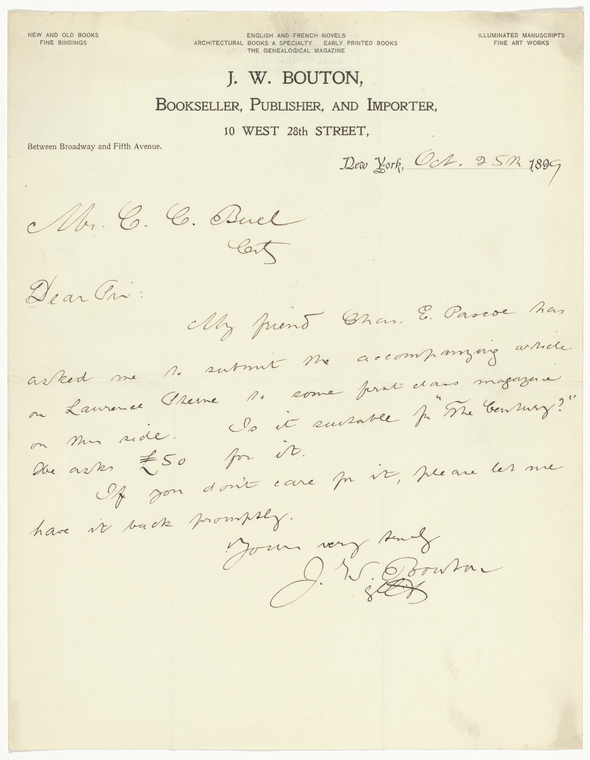 NEW AND OLD BOOKS
FINE BINDINGS
ENGLISH AND FRENCH NOVELS
ARCHITECTURAL BOOKS A SPECIALTY EARLY PRINTED BOOKS
THE GENEALOGICAL MAGAZINE
ILLUMINATED MANUSCRIPTS
FINE ART WORKS
J. W. BOUTON,
BOOKSELLER, PUBLISHER, AND IMPORTER,
10 WEST 28th STREET,
Between Broadway and Fifth Avenue.
New York, Oct. 25th 1899
Mr. C. C. Buel
City
Dear Sir:
My friend Chas. E. Pascoe has
asked me to submit the accompanying article
on Laurence Sterne to some first class magazine
on this side. Is it suitable for "The Century?"
He asks £50 for it.
If you don't care for it, please let me
have it back promptly.
Yours very truly
J. W. Bouton